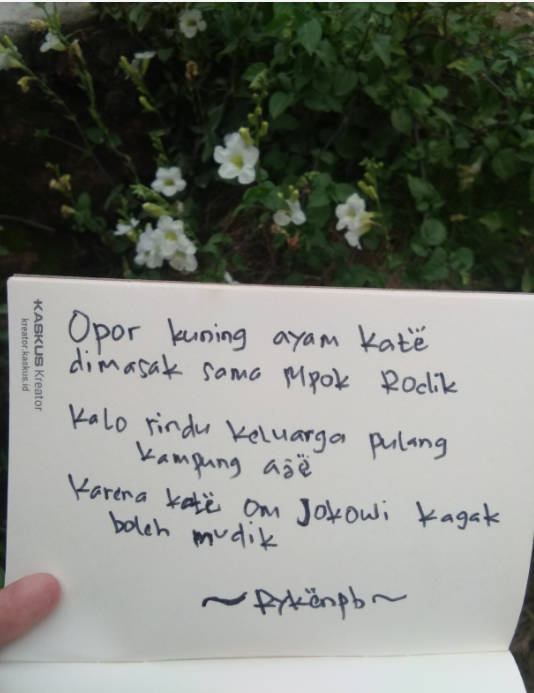 KASKUS Kreator
kreator.kaskus.id
Opor kuning ayam katë
dimasak sama Mpok Rodik
Kalo rindu keluarga pulang
kampung ajë
Karena katë om Jokowi kagak
boleh mudik
~ Rykënpb ~